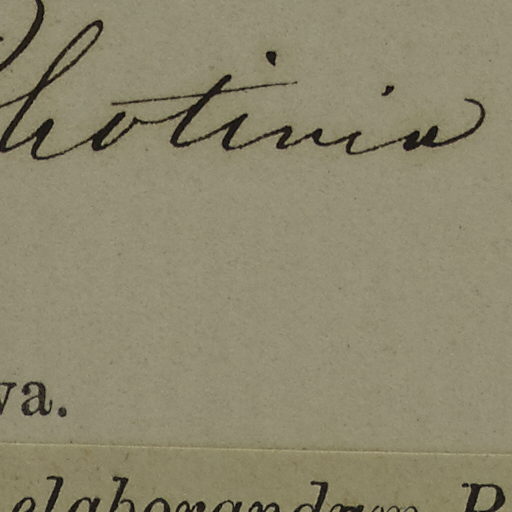 Photinia
va.
elaborandam